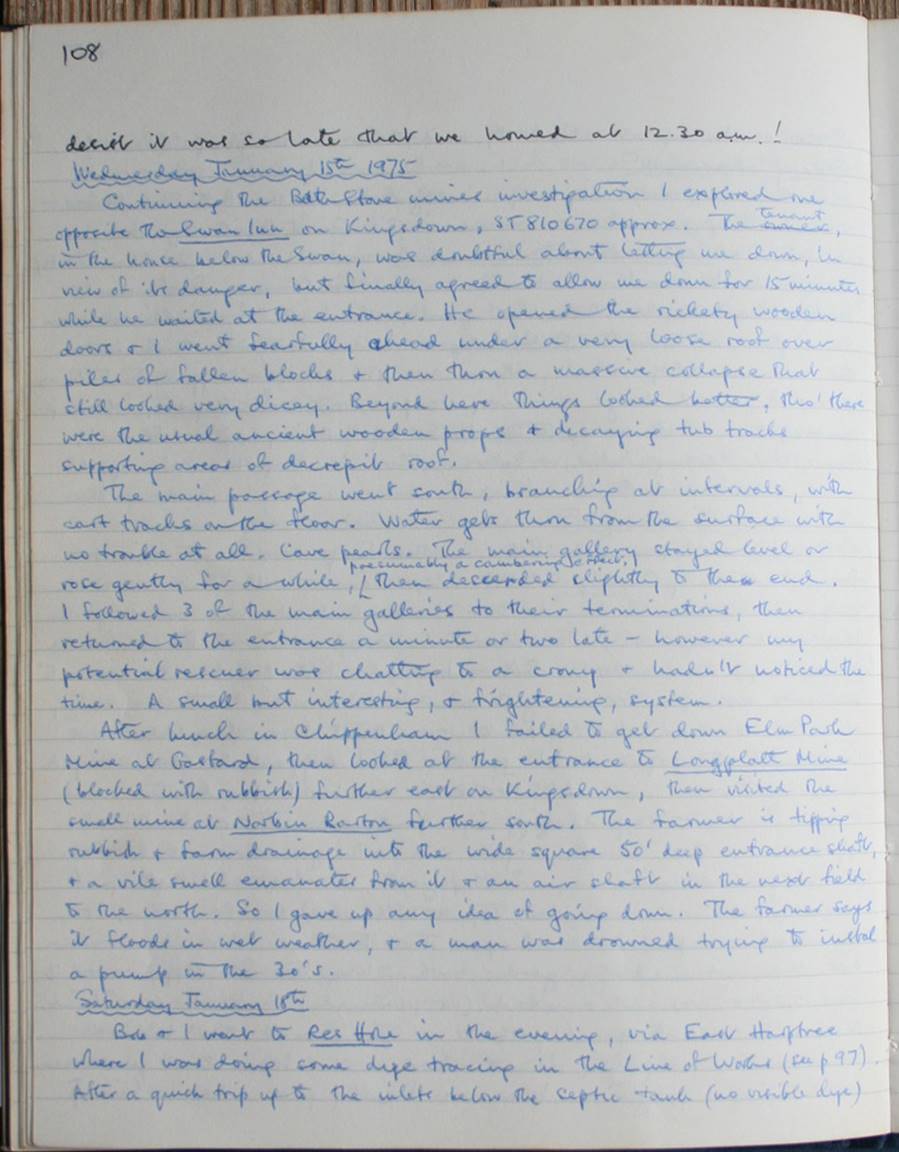 108
desist it was so late that we homed at 12.30 a.m.!
Wednesday January 15th 1975
Continuing the Bath Stone mines investigation I explored one
opposite the Swan Inn on Kingsdown, ST 810670 approx. The tenant,
in the house below the Swan, was doubtful about letting me down, in
view of its danger, but finally agreed to allow me down for 15 minutes
while he waited at the entrance. He opened the rickety wooden
doors & I went fearfully ahead under a very loose roof over
piles of fallen blocks & then thru a massive collapse that
still looked very dicey. Beyond here things looked better, tho' there
were the usual ancient wooden props & decaying tub tracks
supporting areas of decrepit roof.
The main passage went south, branching at intervals, with
cart tracks on the floor. Water gets thru from the surface with
no trouble at all. Cave pearls. The main gallery stayed level or
presumably a cambering effect,
rose gently for a while, then descended slightly to the end.
I followed 3 of the main galleries to their terminations, then
returned to the entrance a minute or two late - however my
potential rescuer was chatting to a crony & hadn't noticed the
time. A small but interesting, & frightening, system.
After lunch in Chippenham I failed to get down Elm Park
Mine at Gastard, then looked at the entrance to Longplatt Mine
(blocked with rubbish) further east on Kingsdown, then visited the
small mine at Norbin Barton further south. The farmer is tipping
rubbish & farm drainage into the wide square 50' deep entrance shaft,
& a vile smell emanates from it & an air shaft in the next field
to the north. So I gave up any idea of going down. The farmer says
it floods in wet weather, & a man was drowned trying to instal
a pump in the 30's.
Saturday January 18th
Bob & I went to Res Hole in the evening, via East Harptree
where I was doing some dye tracing in the Line of Works (see p 97).
After a quick trip up to the inlets below the septic tank (no visible dye)